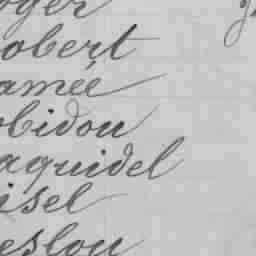 oger
obert
amée
obidou
aquidel
isel
eslou